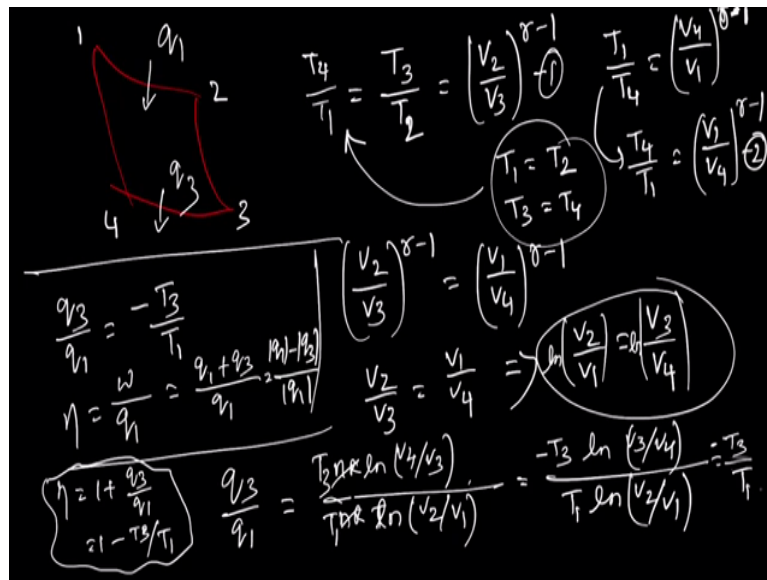 1 q₁ 2
q₃
4 3
T₄/T₁ = T₃/T₂ = (V₂/V₃)^(γ-1) - ①
T₁/T₄ = (V₄/V₁)^(γ-1)
T₄/T₁ = (V₁/V₄)^(γ-1) - ②
T₁ = T₂
T₃ = T₄
(V₂/V₃)^(γ-1) = (V₁/V₄)^(γ-1)
V₂/V₃ = V₁/V₄ ⇒ ln(V₂/V₁) = ln(V₃/V₄)
q₃/q₁ = -T₃/T₁
η = w/q₁ = q₁+q₃/q₁ = |q₁|-|q₃|/|q₁|
η = 1 + q₃/q₁
= 1 - T₃/T₁
q₃/q₁ = T₃nR ln(V₄/V₃)/T₁nR ln(V₂/V₁) = -T₃ ln(V₃/V₄)/T₁ ln(V₂/V₁) = -T₃/T₁